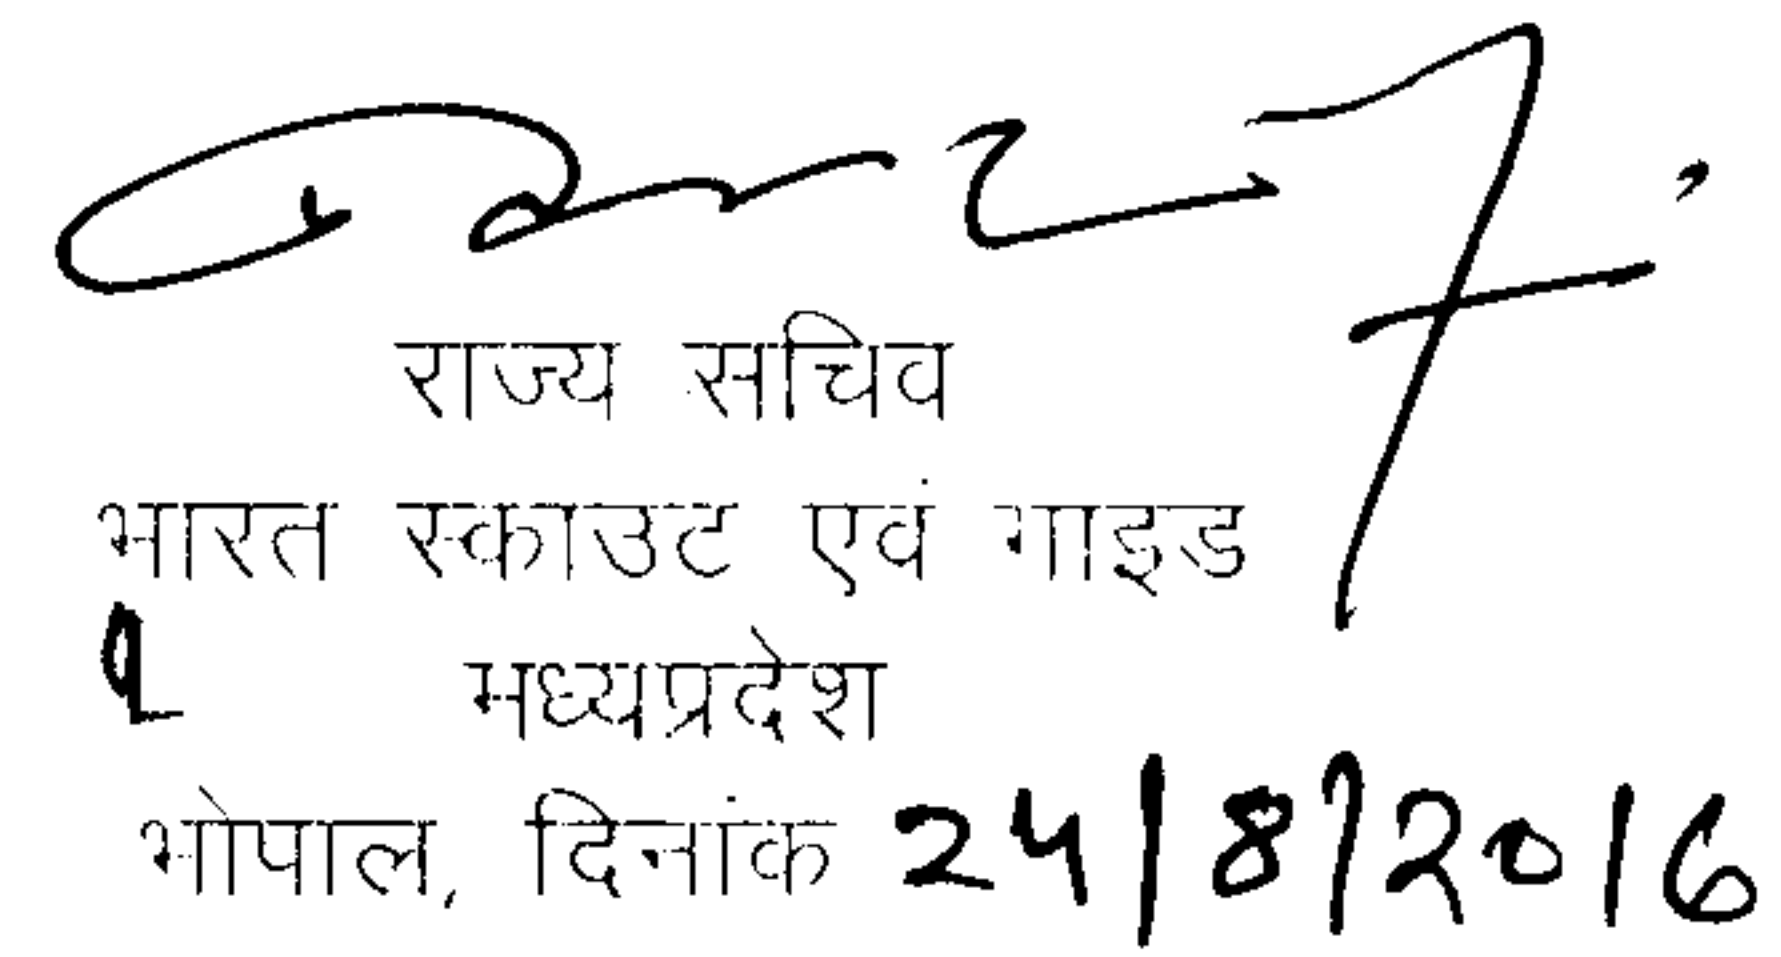 राज्य सचिव
भारत स्काउट एवं गाइड
मध्यप्रदेश
भोपाल, दिनांक 24/8/2016